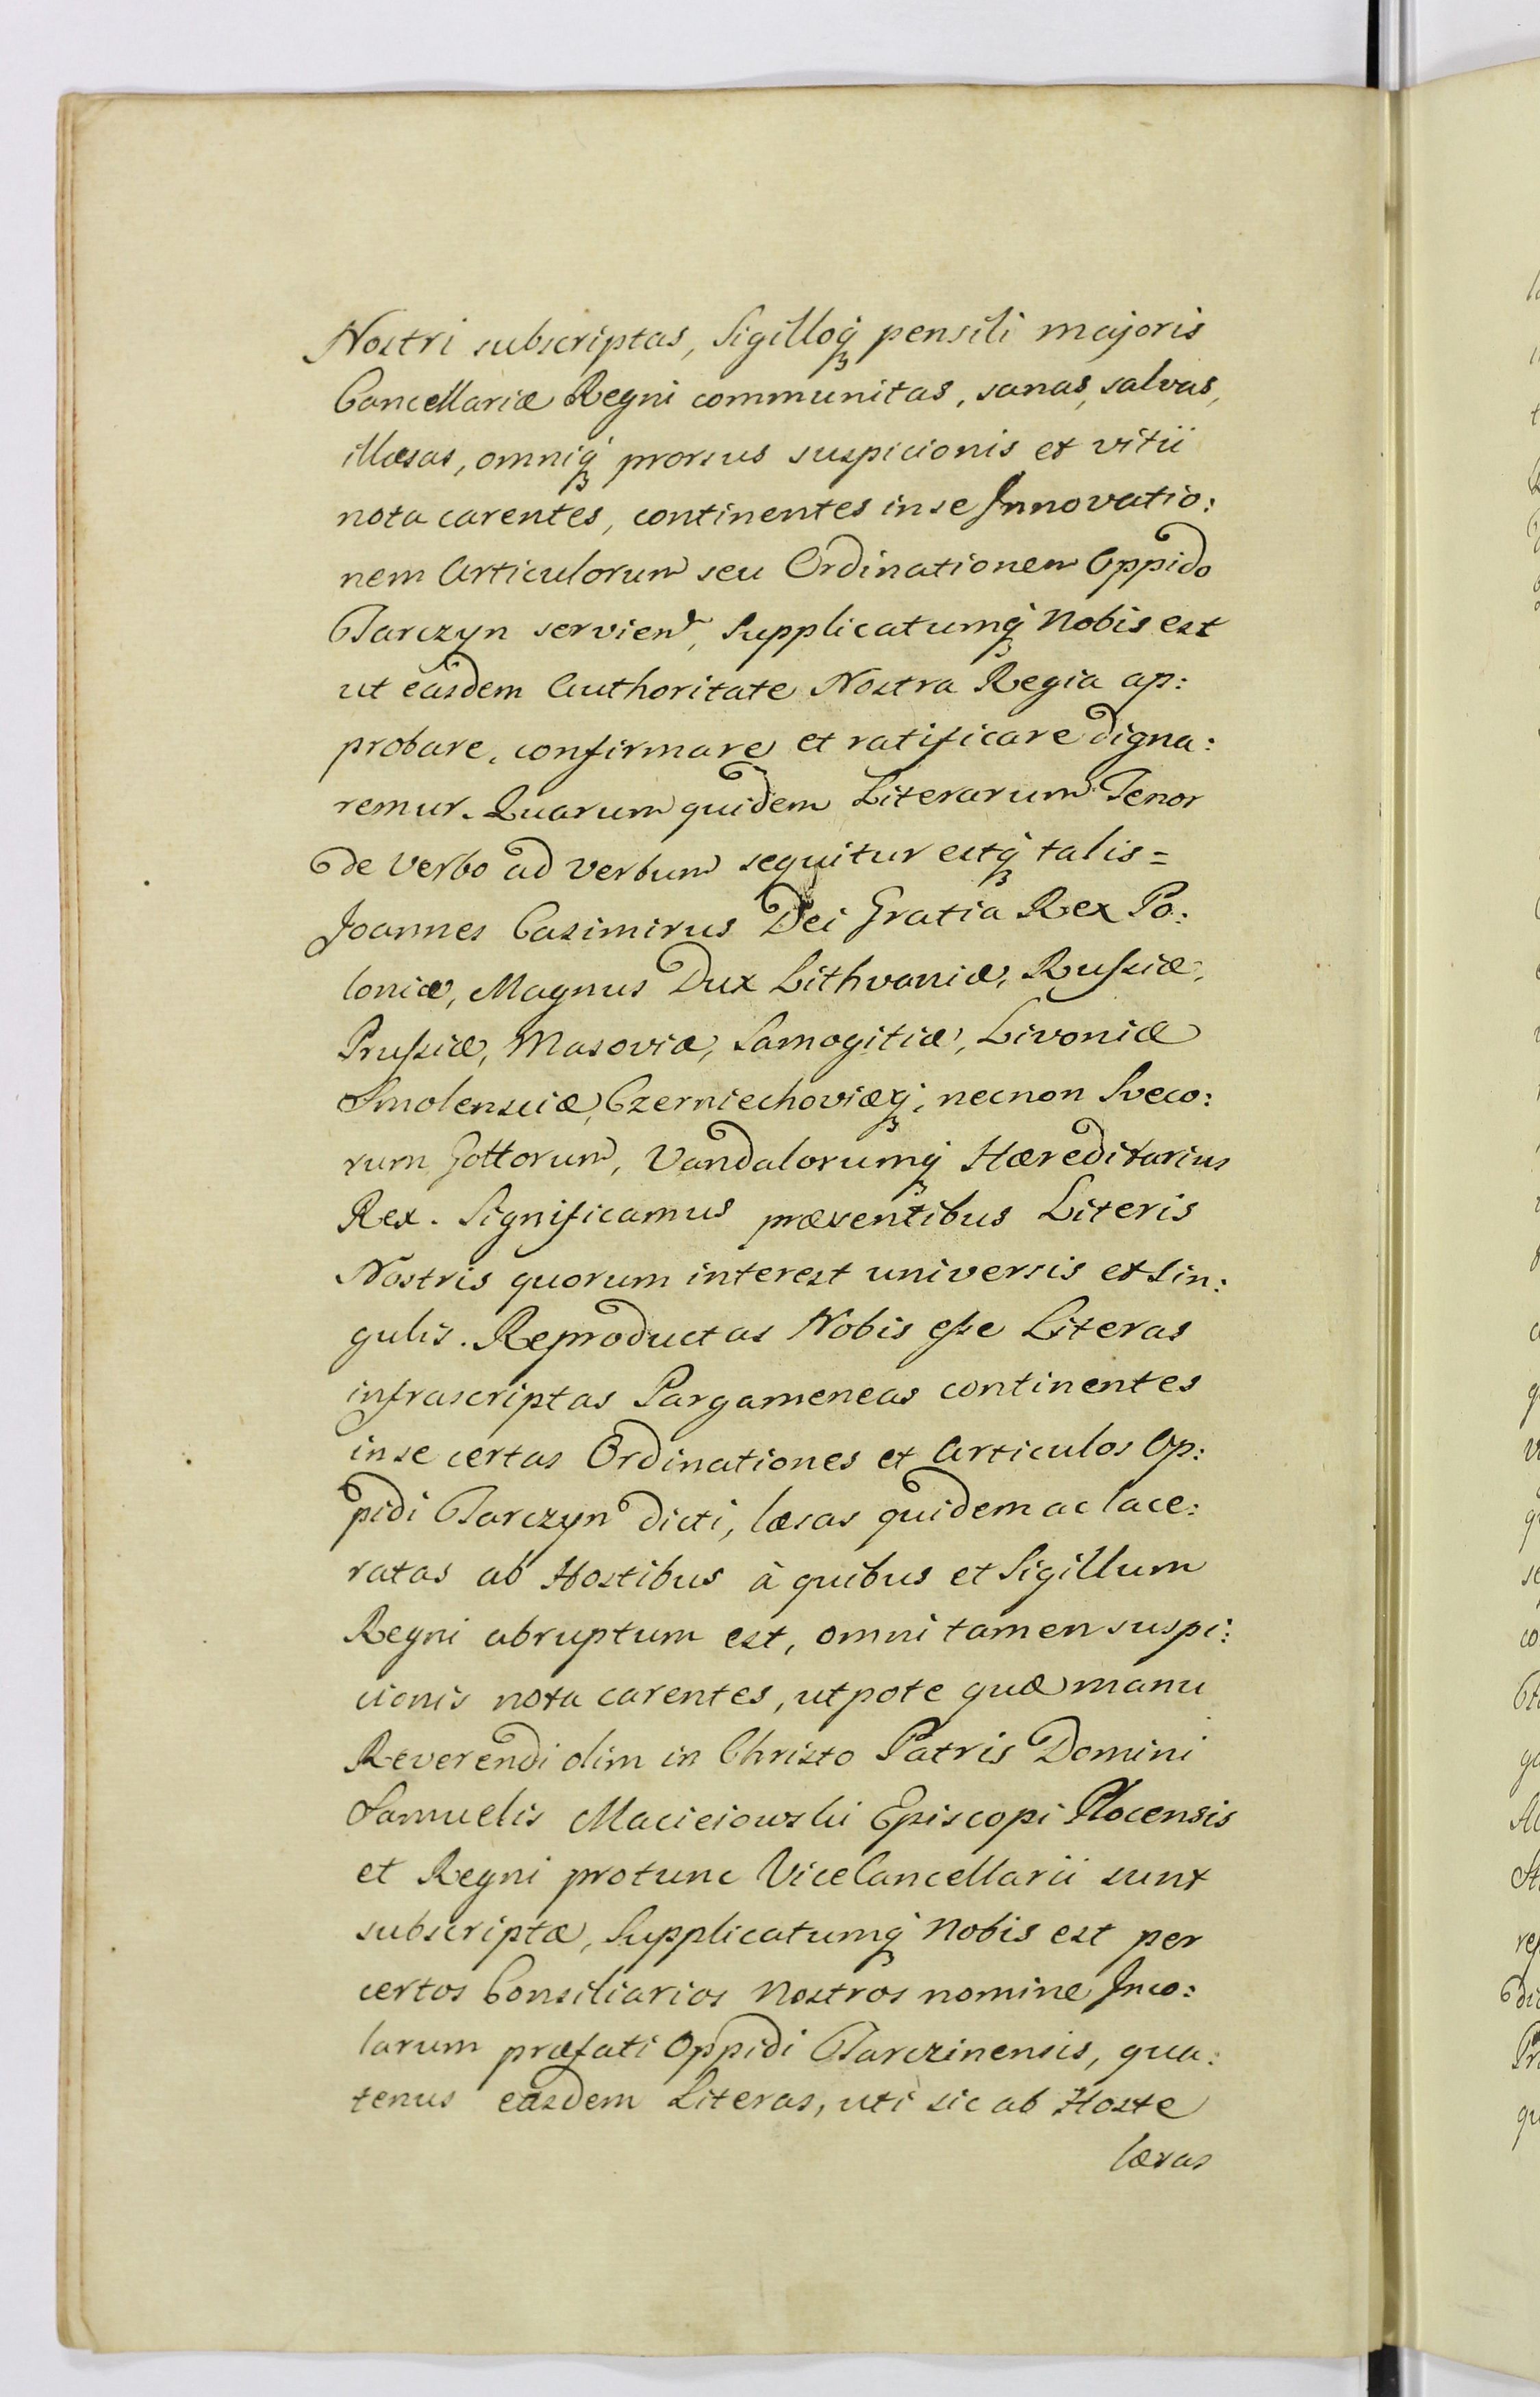 Nostri subscriptas, Sigilloq́ꝫ pensili majoris
Cancellariæ Regni communitas, sanas, salvas,
illæsas, omniq́ꝫ prorsus suspicionis et vitii
nota carentes, continentes in se Innovatio:
nem Articulorum seu Ordinationem Oppido
Tarczyn servien̄, Supplicatumq́ꝫ Nobis est
ut easdem Authoritate Nostra Regia ap:
probare, confirmare et ratificare digna:
remur. Quarum quidem Literarum Tenor
de verbo ad verbum sequitur estq́ꝫ talis =
Joannes Casimirus Dei Gratia Rex Po:
loniæ, Magnus Dux Lithvaniæ, Russiæ,
Prussiæ, Masoviæ, Samogitiæ, Livoniæ
Smolensciæ, Czerniechoviæq́ꝫ, necnon Sveco:
rum Gottorum, Vandalorumq́ꝫ Hæreditarius
Rex. Significamus præsentibus Literis
Nostris quorum interest universis et sin:
gulis. Reproductas Nobis esse Literas
infrascriptas Pargameneas continentes
in se certas Ordinationes et Articulos Op:
pidi Tarczyn dicti, læsas quidem ac lace:
ratas ab Hostibus à quibus et Sigillum
Regni abruptum est, omni tamen suspi:
cionis nota carentes, utpote quæ manu
Reverendi olim in Christo Patris Domini
Samuelis Macieiowski Episcopi Plocensis
et Regni protunc ViceCancellarii sunt
subscriptæ, Supplicatumq́ꝫ Nobis est per
certos Consiliarios Nostros nomine Inco:
larum præfati Oppidi Tarczinensis, qua:
tenus easdem Literas, uti sic ab Hoste
læsas